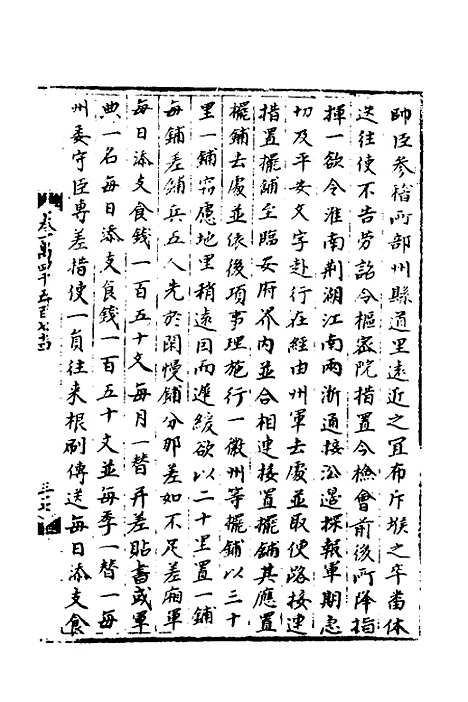 帥臣參稽所部州縣道里遠近之冝布斥堠之卒畨休
迭往使不告劳詔令樞宻院措置今檢會前後所降指
揮一欲令淮南荆湖江南兩浙通接㳂邉探報軍期急
切及平安文字赴行在經由州軍去處並取便路接連
措置擺鋪至臨安府界内並合相連接置擺鋪其應置
擺鋪去處並依後項事理施行一徽州等擺鋪以三十
里一鋪竊慮地里稍遠因而遲緩欲以二十里置一鋪
每鋪差鋪兵五人先於閑慢鋪分那差如不足差廂軍
每日添支食錢一百五十文每月一替并差貼書或軍
典一名每日添支食錢一百五十文並每季一替一每
州委守臣專差指使一員往来根刷傳送每日添支食
卷一萬四千五百七十五
三